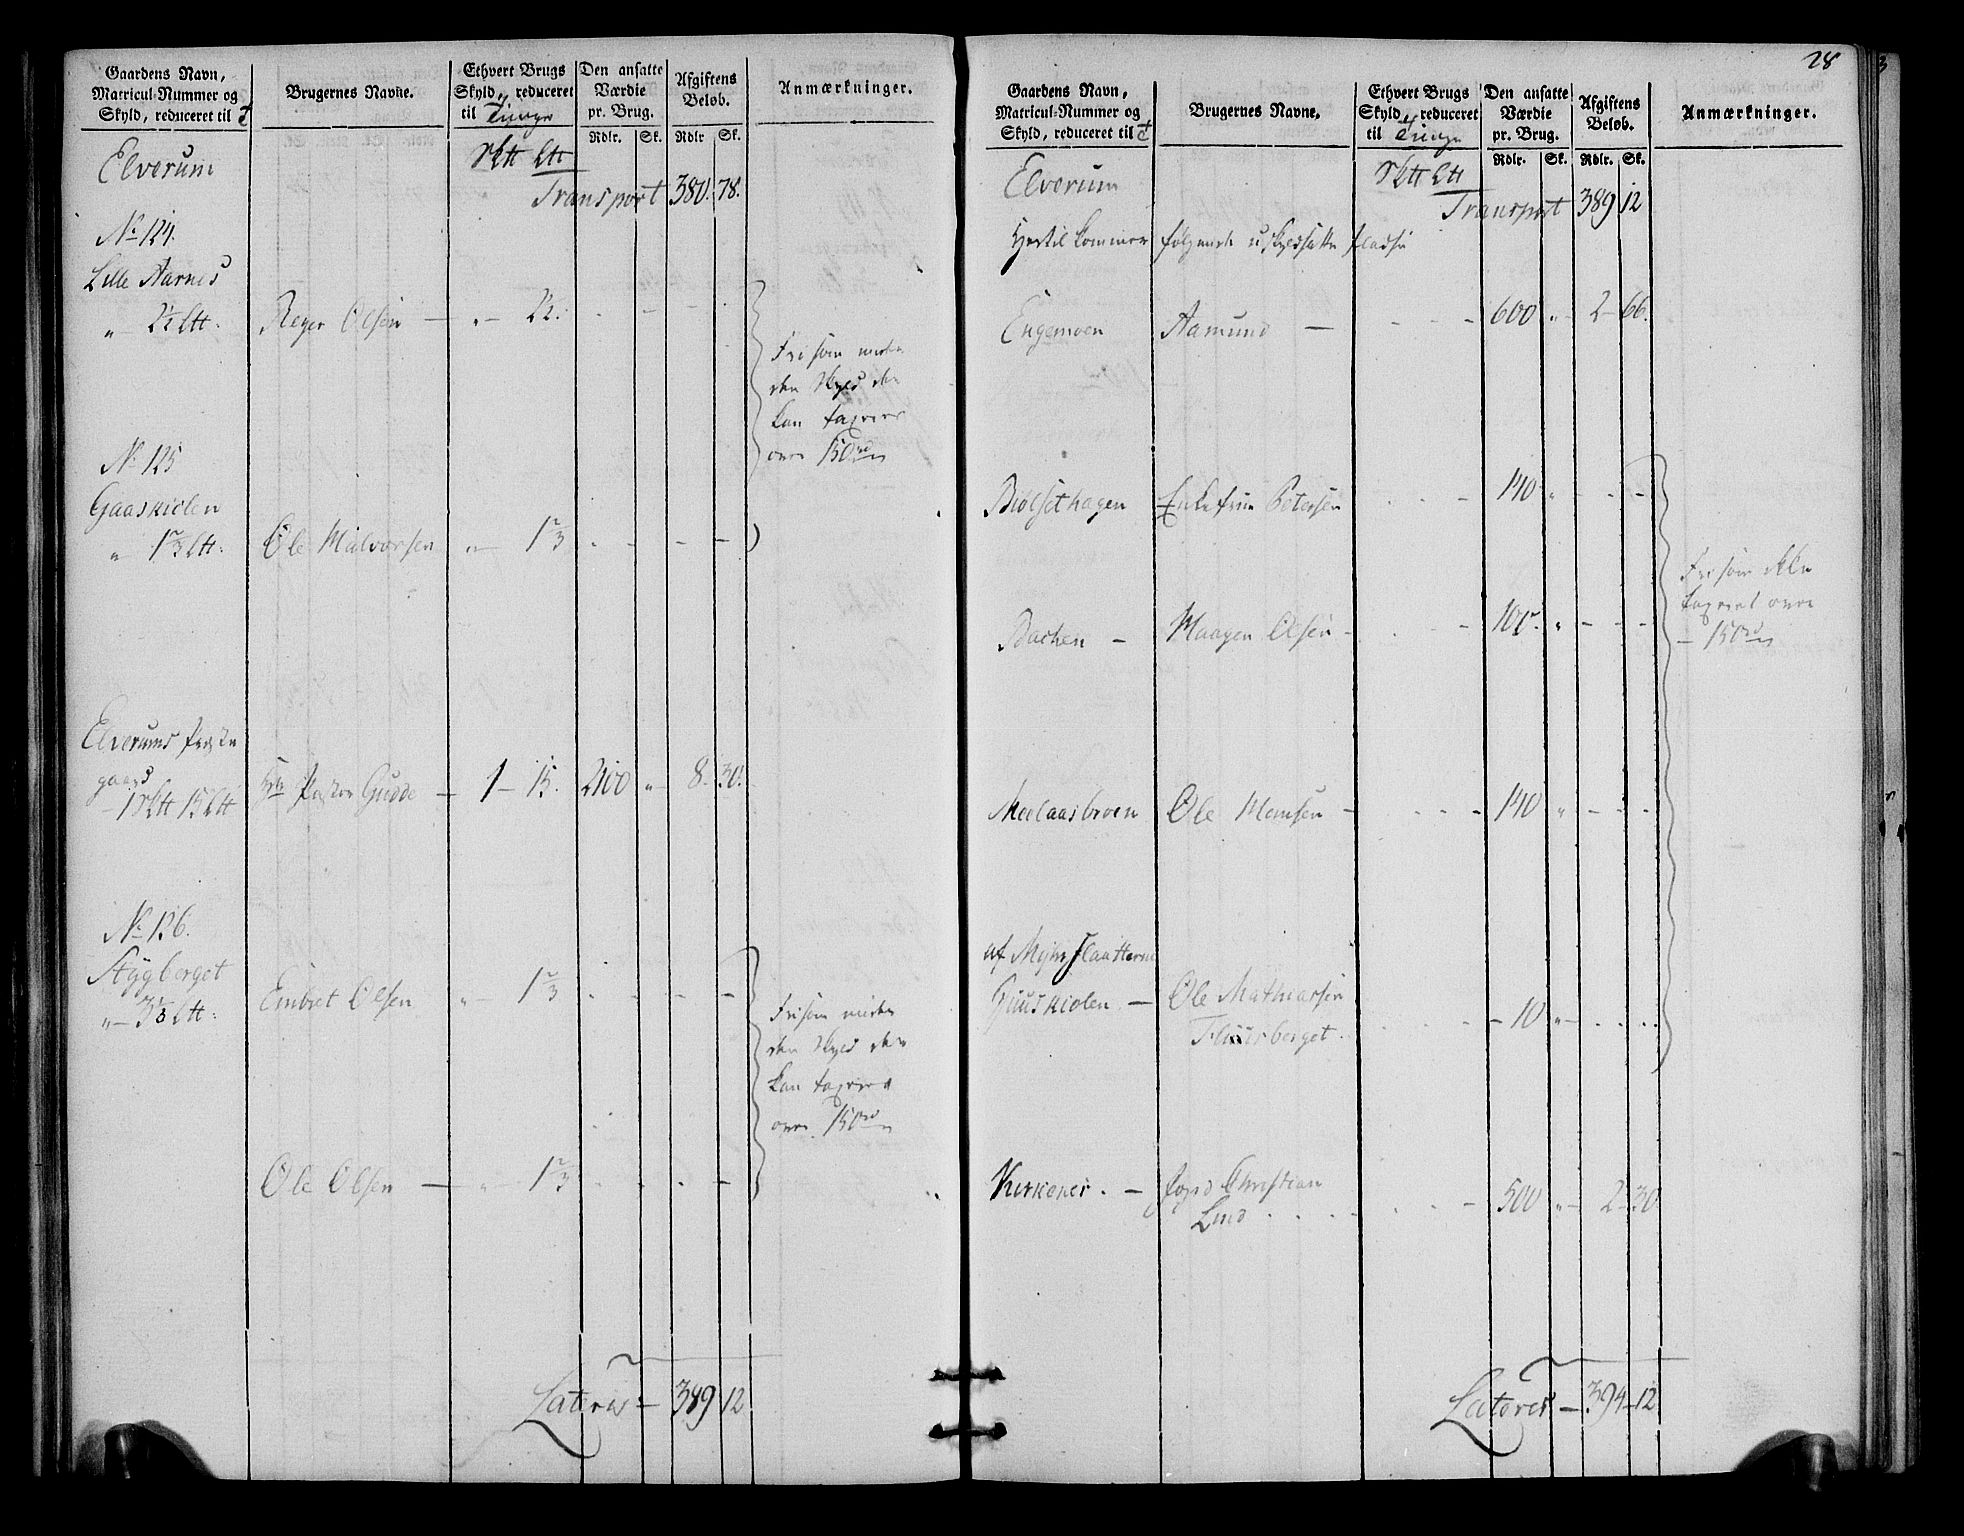 Gaardens Navn,
Matricul-Nummer og
Skyld, reduceret til
Brugernes Navne.
Ethvert Brugs
Skyld, reduceret
til Tunge
Den ansatte
Værdie
pr. Brug.
Rdlr. Sk.
Afgiftens
Beløb.
Rdlr Sk.
Anmærkninger.
Elverum
Transport 380. 78.
No 124.
Lille Aarnes
„ 2½ Ltt. Reyer Olsen — „ — 2½. - - - -
Fri som under
den Skyld der
kan taxeres
over 150 rd
No 125
Gaaskiolen
„ 1⅔ Ltt. Ole Halvorsen „ — 1⅔ - - - -
Elverums Præste
gaard
— 1 Sktt 15 Ltt Hr Pastor Gudde — 1 — 15. 2100 „ 8. 30.
No 126.
Stygberget
„ — 3⅓ Ltt. Embret Olsen „ — 1⅔ - - - -
Fri som under
den Skyld der
kan taxeres
over 150 rd
Ole Olsen — „ — 1⅔ - - - -
Lateris — 389 12
28
Gaardens Navn,
Matricul-Nummer og
Skyld, reduceret til
Brugernes Navne.
Ethvert Brugs
Skyld, reduceret
til Tunge
Den ansatte
Værdie
pr. Brug.
Rdlr. Sk.
Afgiftens
Beløb.
Rdlr. Sk.
Anmærkninger.
Elverum
Transport 389 12
Hertil kommer følgende uskyldsatte Pladse
Engemoen Aamund — 600 „ 2 — 66.
Biolsethagen Enkefrue Petersen 140 „ - - -
Bachen — Maagen Olsen - 100. „ - - -
Fri som ikke
taxeret over
— 150 rd
Meelaasbroen Ole Monsen — 140 „ - - -
af
Guuskiolen — Ole Mathiassen
Fluusberget. — 10 „ - - -
Kirkenes. — Foged Christian
Lund 500 „ 2 — 30
Lateris — 394 — 12